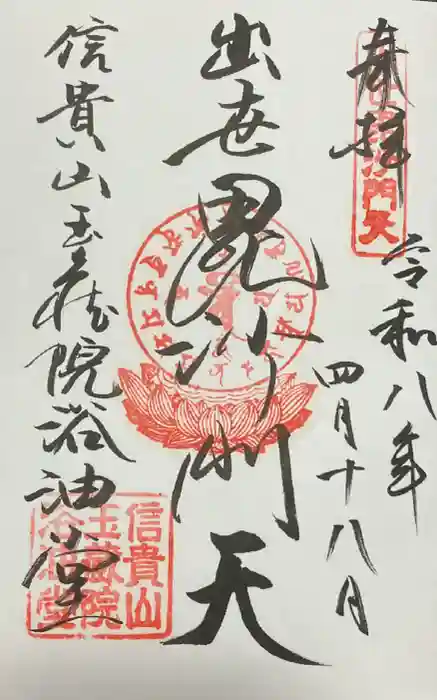 奉拝
令和八年
四月十八月
出世毘沙門天
信貴山玉蔵院浴油堂
沙門天
信貴山
玉蔵院
浴油堂